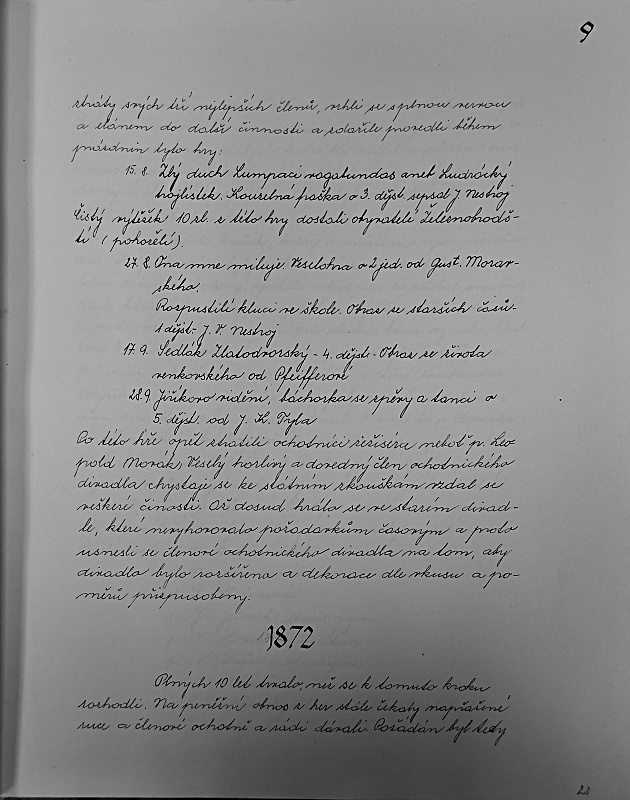 9
ztráty svých tří nejlepších členů, vrhli se s plnou vervou
a elánem do další činnosti a zdařile provedli během
prázdnin tyto hry:
15. 8. Zlý duch Lumpaci vagabundas aneb Ludrácký
trojlístek. Kouzelná fraška o 3. dějst. sepsal J. Nestroj
Čistý výtěžek 10 zl. z této hry dostali obyvatelé Železnobrodš-
tí (pohořelí).
27. 8. Ona mne miluje. Veselohra o 2 jed. od Gust. Morav-
ského.
Rozpustilí kluci ve škole. Obraz ze starších časů-
1 dějst.- J. V. Nestroj
17. 9. Sedlák Zlatodvorský - 4. dějst. Obraz ze života
venkovského od Pfeifferové
28.9. Jiříkovo vidění, báchorka se zpěvy a tanci o
5. dějst. od J. K. Tyla
Po této hře opět ztratili ochotníci režiséra neboť p. Leo
pold Novák, Veselý horlivý a dovedný člen ochotnického
divadla chystaje se ke státním zkouškám vzdal se
veškeré činosti. Až dosud hrálo se ve starém divad-
le, které nevyhovovalo požadavkům časovým a proto
usnesli se členové ochotnického divadla na tom, aby
divadlo bylo rozšířeno a dekorace dle vkusu a po-
měrů přizpusobeny.
1872
Plných 10 let trvalo, než se k tomuto kroku
rozhodli. Na peněžní obnos z her stále čekaly napřažené
ruce a členové ochotně a rádi dávali. Pořádán byl tedy